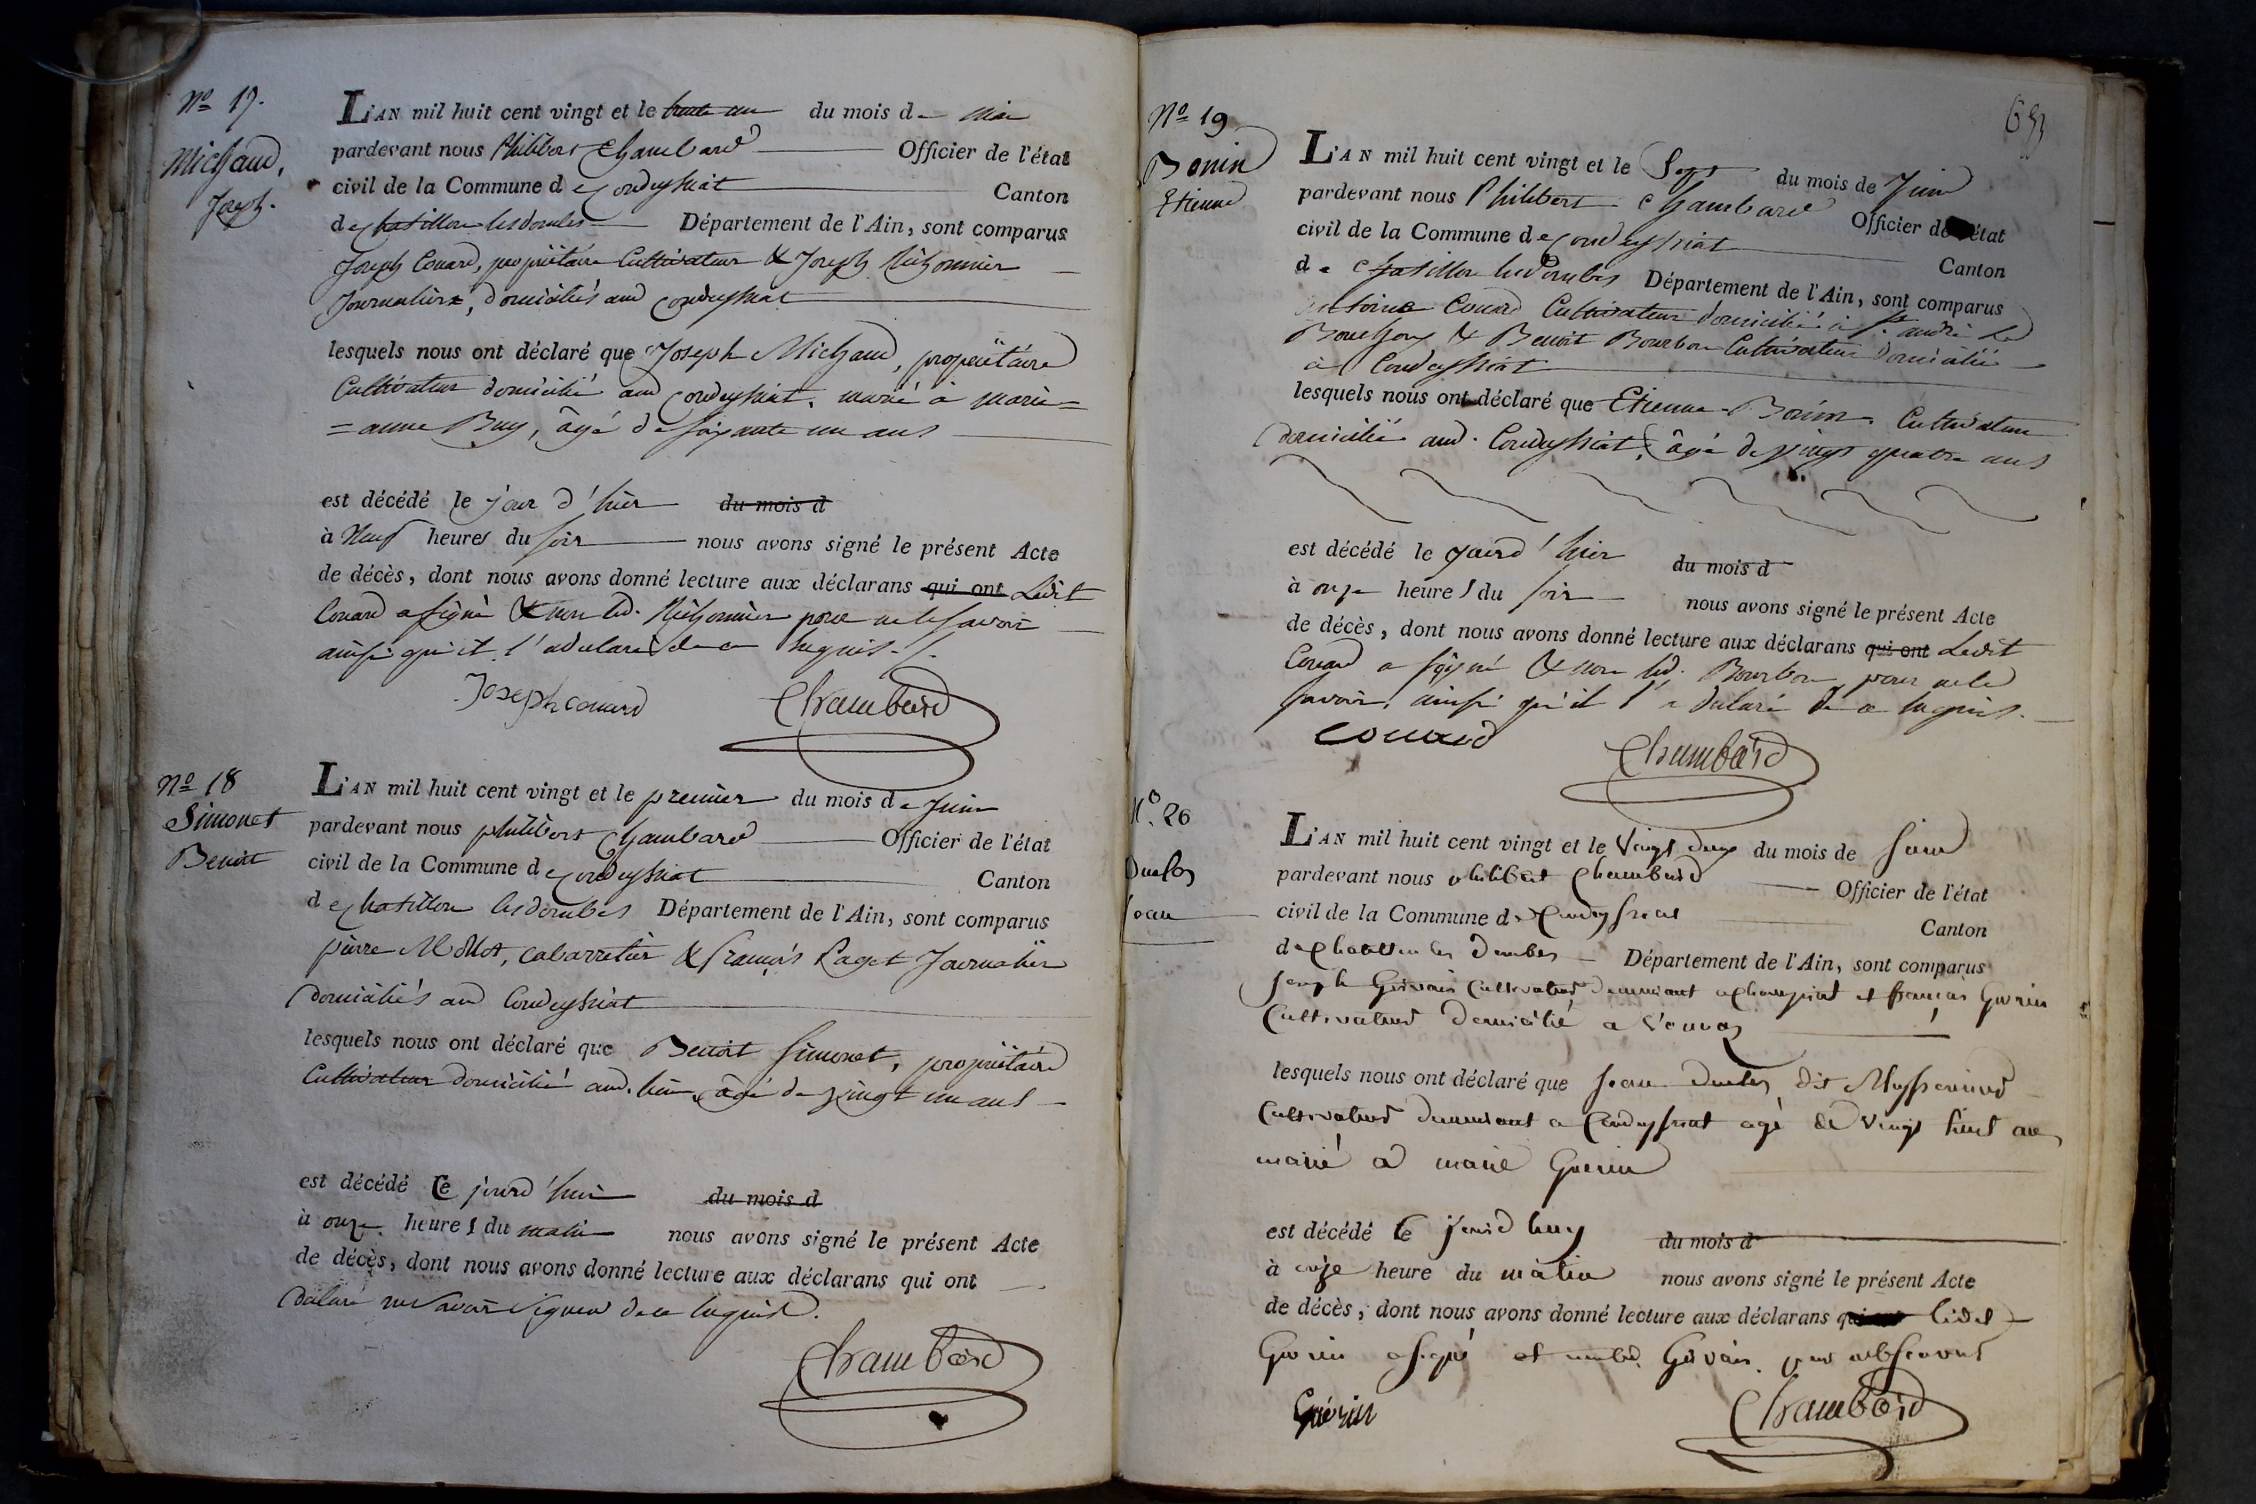 Nº 17.
Michaud,
Joseph.
L'AN mil huit cent vingt et le trente un du mois de mai
pardevant nous Philibert Chambard Officier de l'état
civil de la Commune de Condeyssiat Canton
de Chatillon les dombes Département de l'Ain, sont comparus
Joseph Couard, propriétaire Cultivateur & Joseph Michonnier
Journaliers, domiciliés aud Condeyssiat
lesquels nous ont déclaré que Joseph Michaud, propriétaire
Cultivateur domicilié aud Condeyssiat, marié à marie=
=anne Buy, âgé de soixante un ans
est décédé le jour d'hier du mois d
à Neuf heures du soir nous avons signé le présent Acte
de décès, dont nous avons donné lecture aux déclarans qui ont Ledit
Couard a signé & non led. Michonnier pour ne le savoir
ainsi qu'il l'a déclaré de ce requis./.
Joseph couard Chambard
Nº 18
Simonet
Benoit
L'AN mil huit cent vingt et le premier du mois de Juin
pardevant nous philibert Chambard Officier de l'état
civil de la Commune de Condeyssiat Canton
de Chatillon les dombes Département de l'Ain, sont comparus
pierre Mollot, cabarretier & françois Paget Journalier
domiciliés aud Condeyssiat
lesquels nous ont déclaré que Benoit Simonet, propriétaire
Cultivateur domicilié aud. lieu, âgé de vingt un ans
est décédé Ce jourd'hui du mois d
à onze heures du matin nous avons signé le présent Acte
de décès, dont nous avons donné lecture aux déclarans qui ont
déclaré ne savoir signer de ce requis.
Chambard
Nº 19
Bonin
Etienne
L'AN mil huit cent vingt et le Sept du mois de Juin
pardevant nous Philibert Chambard Officier de l'état
civil de la Commune de Condeyssiat Canton
de Chatillon les Dombes Département de l'Ain, sont comparus
antoine Couard Cultivateur domicilié à St. andré le
Bouchoux & Benoit Bourbon Cultivateur domicilié
à Condeyssiat
lesquels nous ont déclaré que Etienne Bonin Cultivateur
domicilié aud. Condeyssiat, âgé de vingt quatre ans
est décédé le jour d'hier du mois d
à onze heures du soir nous avons signé le présent Acte
de décès, dont nous avons donné lecture aux déclarans qui ont Ledit
Couard a signé & non led. Bourbon pour ne le
savoir, ainsi qu'il l'a déclaré de ce requis.
couard Chambard
Nº. 20
Jean
L'AN mil huit cent vingt et le Vingt deux du mois de Juin
pardevant nous philibert Chambard Officier de l'état
civil de la Commune de Condeyssiat Canton
de Chatillon les Dombes Département de l'Ain, sont comparus
Joseph Gervais Cultivateur demeurant a et françois Guerin
Cultivateur domicilié a Vonnas
lesquels nous ont déclaré que Jean dit
Cultivateur demeurant a Condeyssiat agé de Vingt huit ans
marié a marie Guerin
est décédé Ce jourd huy du mois d
à onze heure du matin nous avons signé le présent Acte
de décès, dont nous avons donné lecture aux déclarans qui ont ledit
Guerin a signé et non led. Gervais pour ne le savoir
Guérin Chambard